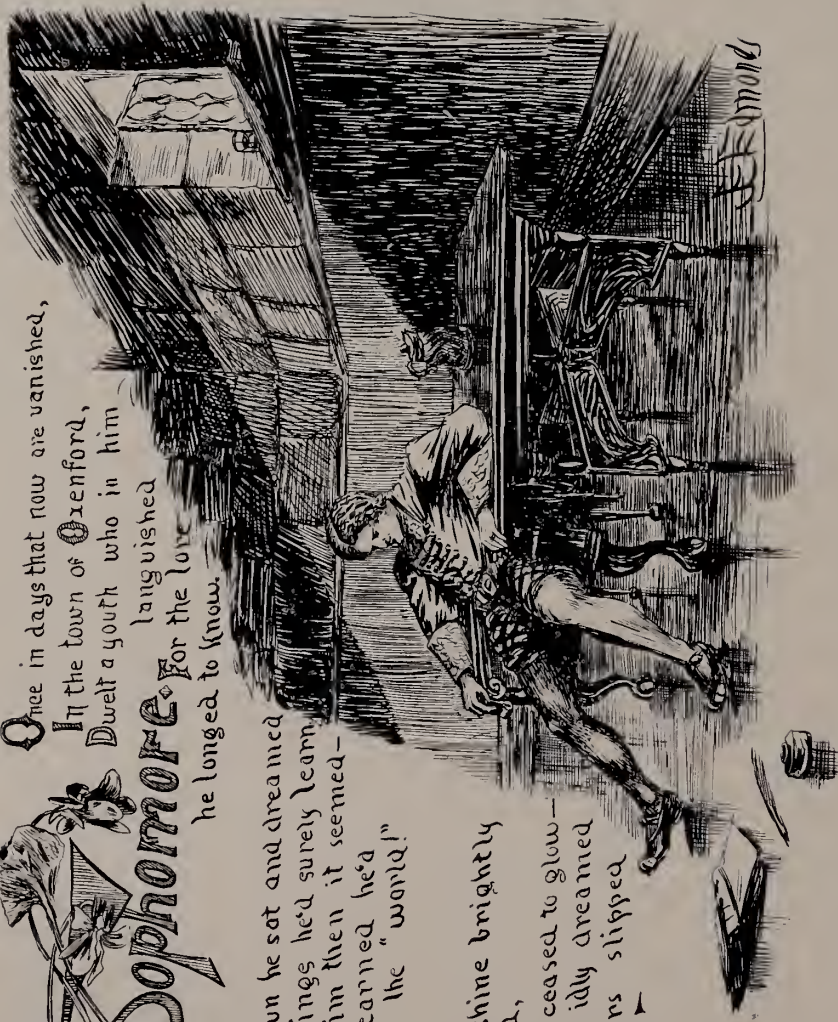 Sophomore.
Once in days that now are vanished,
In the town of Oxenford,
Dwelt a youth who in him
languished
For the lore
he longed to know.
un he sat and dreamed
ings he'd surely learn,
im then it seemed—
earned he'd
the "world!"
hine brightly
d,
ceased to glow—
idly dreamed
rs slipped